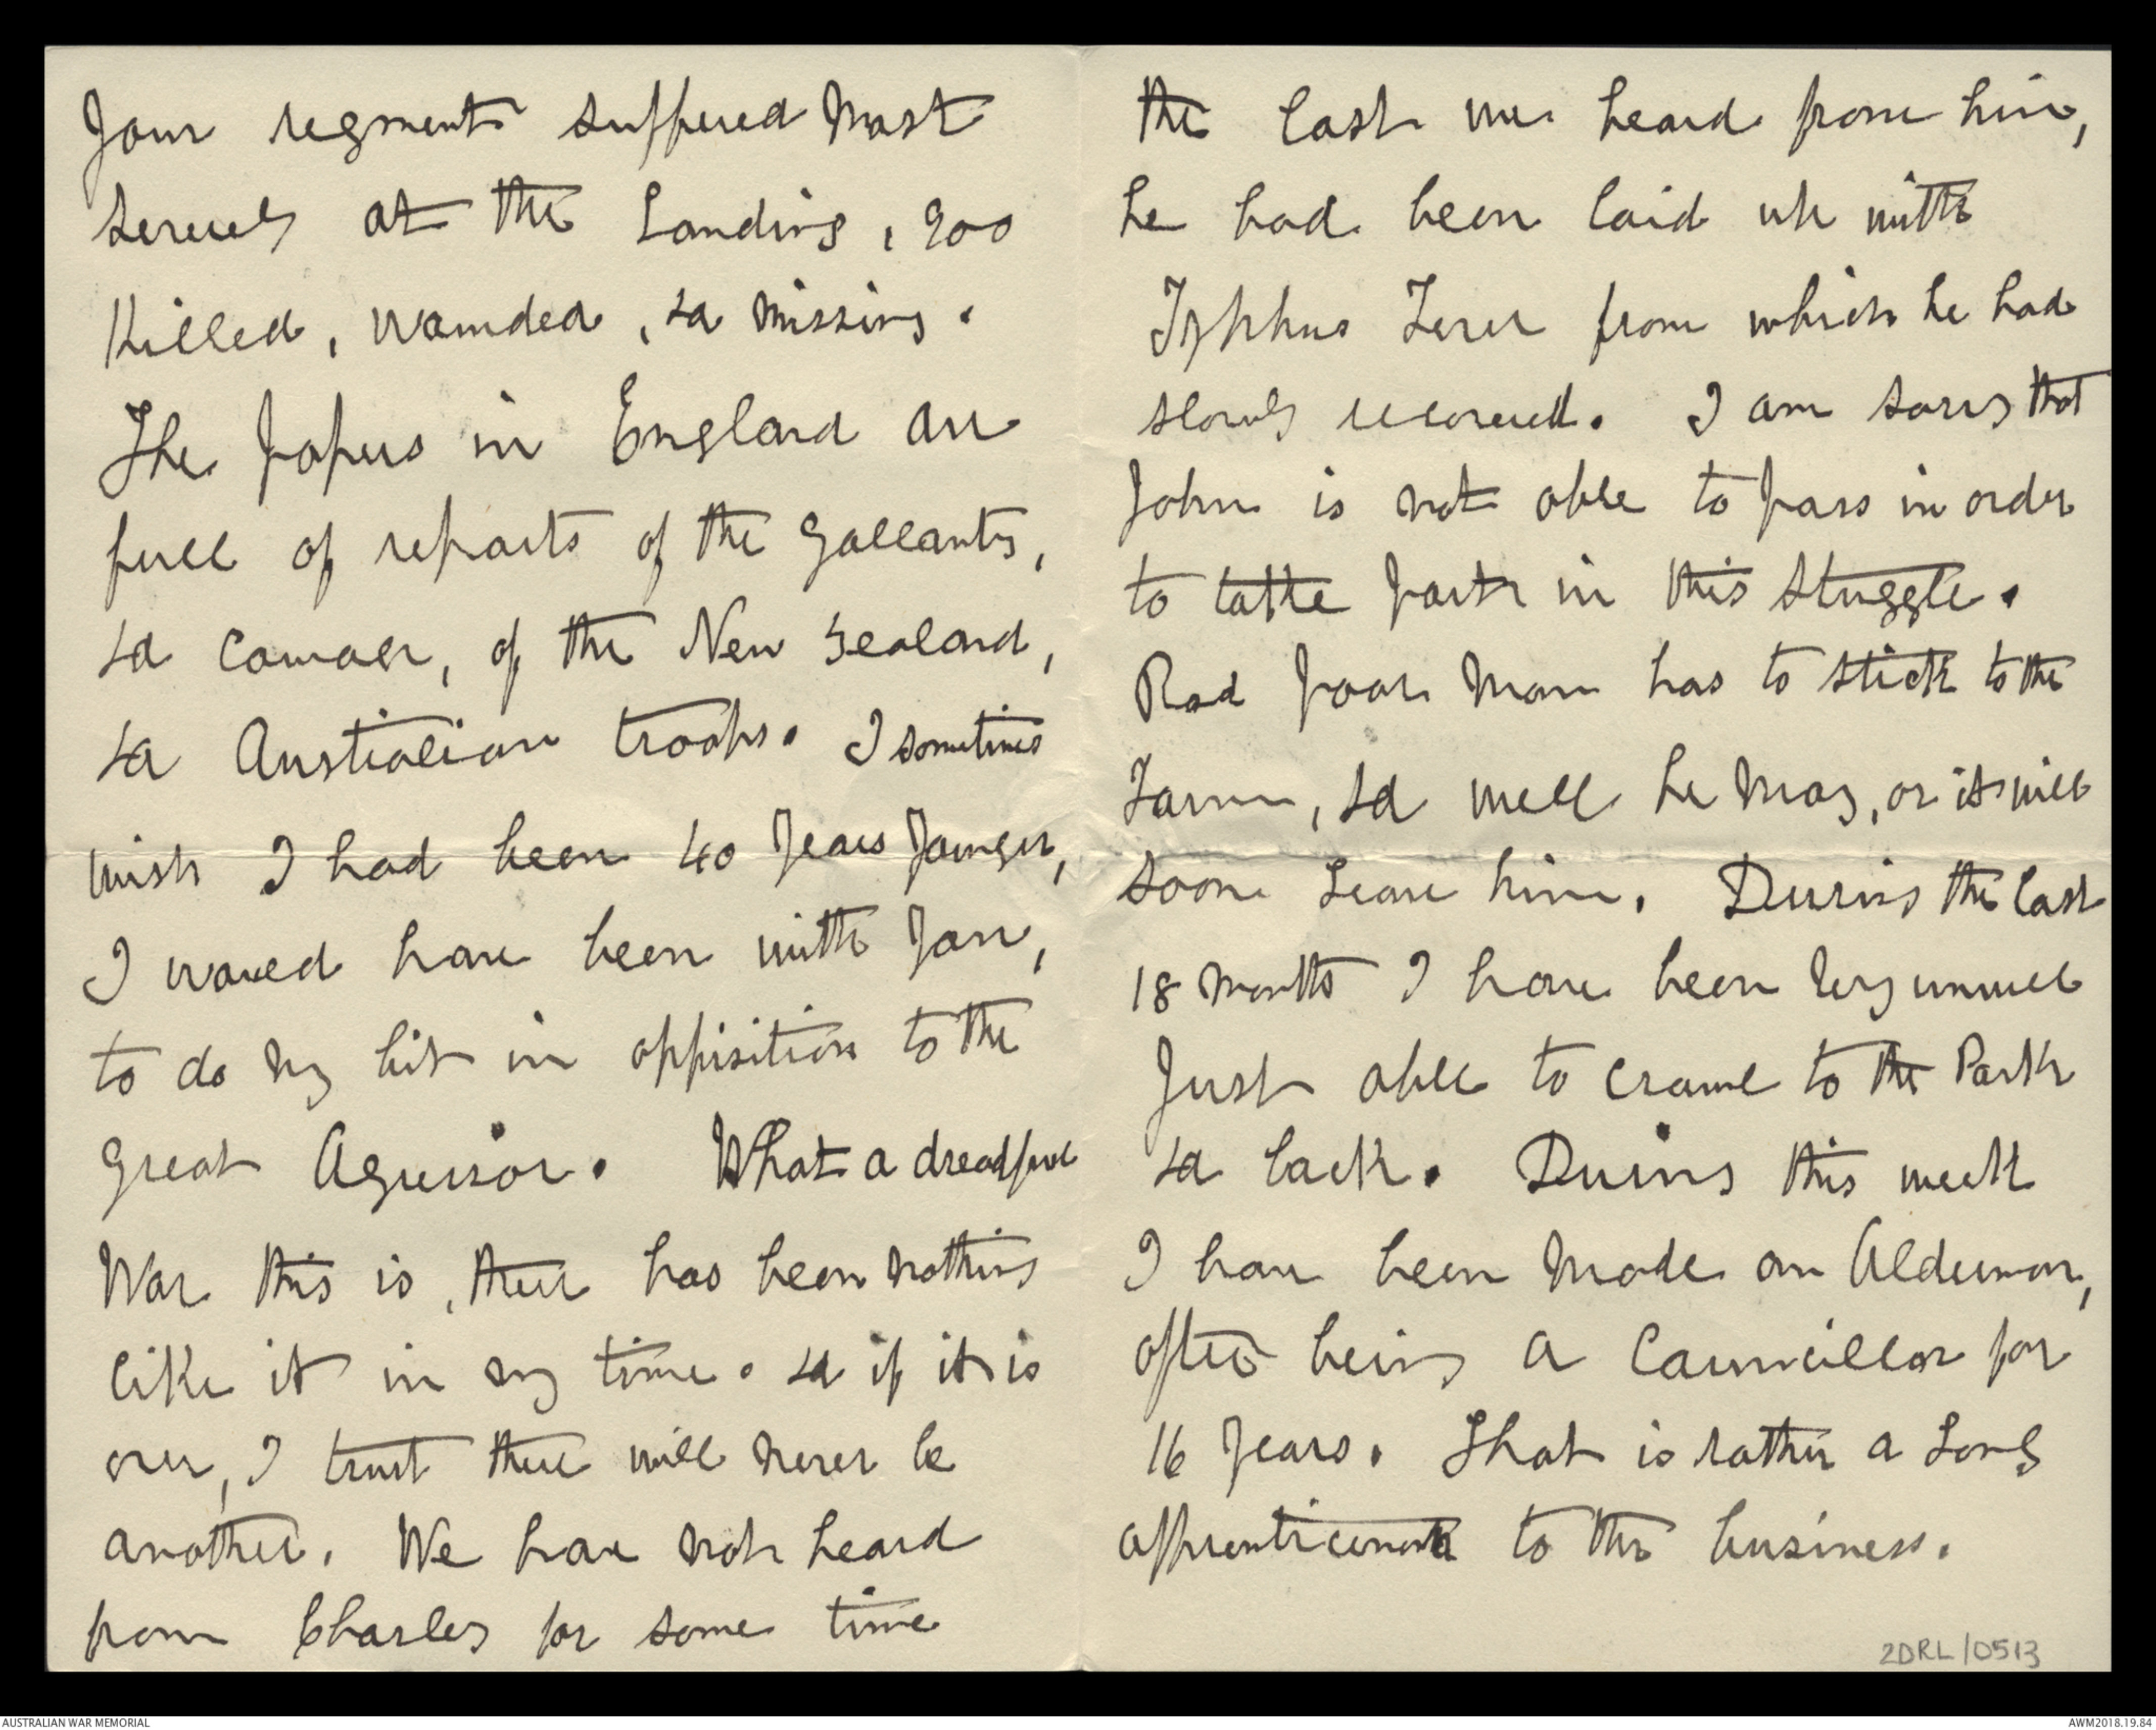 Your regment suffered most
severely at the Landing, 900
Killed, wounded, & missing.
The papers in England are
full of reports of the gallantry,
& courage, of the New Zealand,
& Australian troops. I sometimes
wish I had been 40 years younger,
I would have been with you,
to do my bit in oppisition to the
great Agressor. What a dreadful
War this is, there has been nothing
like it in my time. & if it is
over, I trust there will never be
another. We have not heard
from Charley for some time
the last we heard from him,
he had been laid up with
Typhus Fever from which he had
slowly recovered. I am sorry that
John is not able to pass in order
to take part in this stuggle.
Rod poor man has to stick to the
Farm, & well he may, or it will
soon leave him. During the last
18 months I have been very unwell
Just able to crawl to the Park
& back. During this week
I have been made an Alderman,
after being a Councillor for
16 years. That is rather a long
to the business.
2DRL/0513
AUSTRALIAN WAR MEMORIAL
AWM2018.19.84